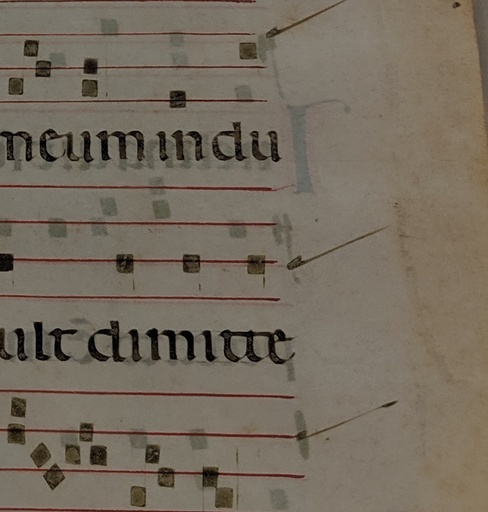 meum in du
ult dimitte